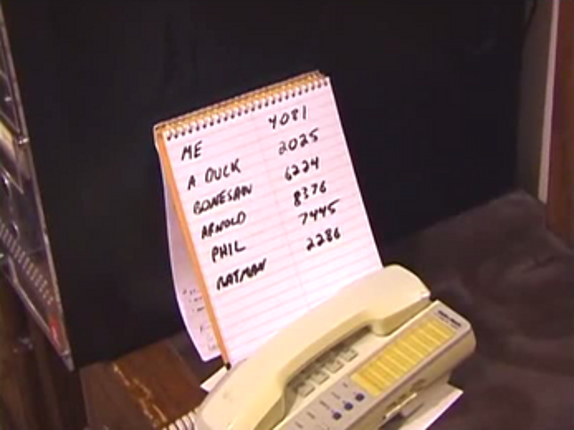 ME 4081
A DUCK 2025
BONESAW 6224
ARNOLD 8376
PHIL 7445
RATMAN 2286